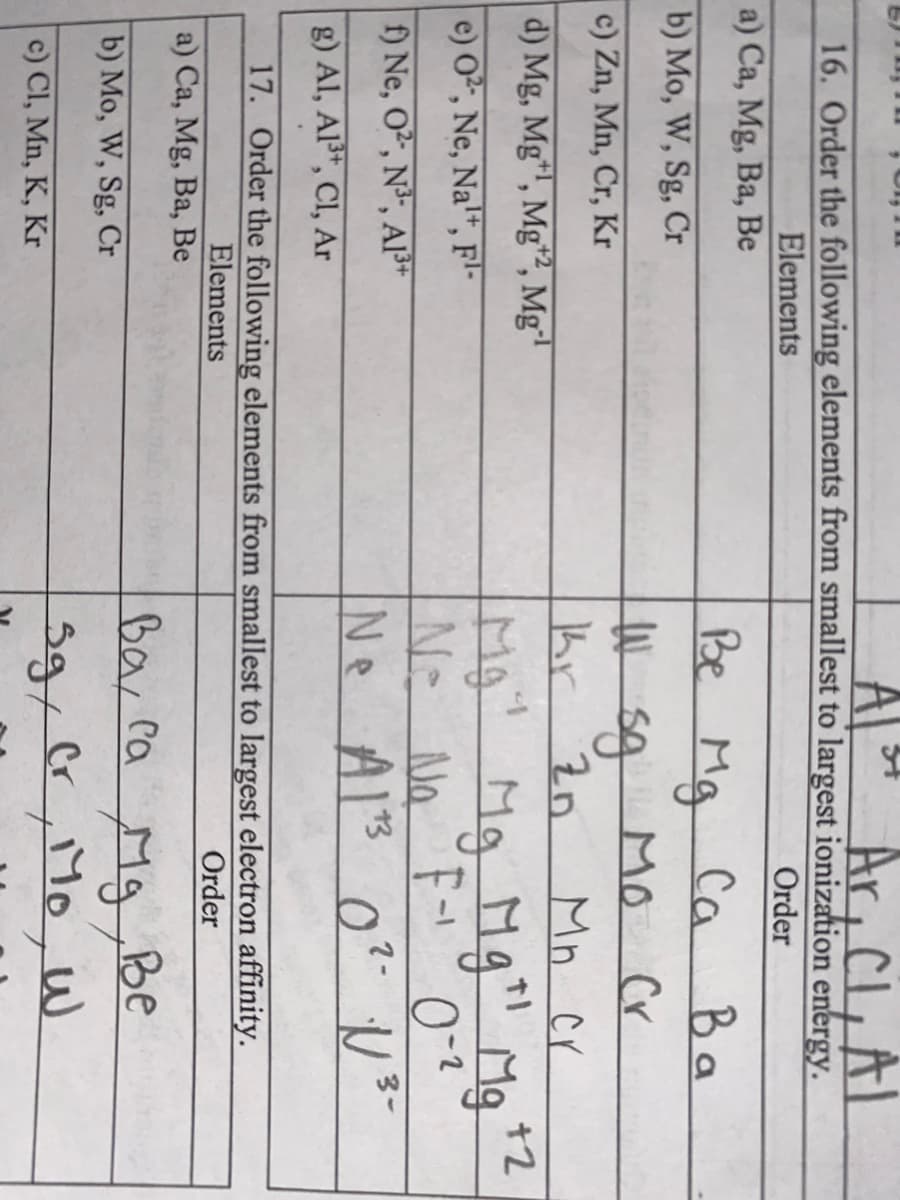 Al³⁺ Ar, Cl, Al
16. Order the following elements from smallest to largest ionization energy.
Elements Order
a) Ca, Mg, Ba, Be Be Mg Ca Ba
b) Mo, W, Sg, Cr W sg Mo Cr
c) Zn, Mn, Cr, Kr Kr Zn Mn Cr
d) Mg, Mg⁺¹, Mg⁺², Mg⁻¹ Mg⁻¹ Mg Mg⁺¹ Mg⁺²
e) O²⁻, Ne, Na¹⁺, F¹⁻ Ne Na F⁻¹ O⁻²
f) Ne, O²⁻, N³⁻, Al³⁺ Ne Al⁺³ O²⁻ N³⁻
g) Al, Al³⁺, Cl, Ar
17. Order the following elements from smallest to largest electron affinity.
Elements Order
a) Ca, Mg, Ba, Be Ba, Ca, Mg, Be
b) Mo, W, Sg, Cr Sg, Cr, Mo, W
c) Cl, Mn, K, Kr